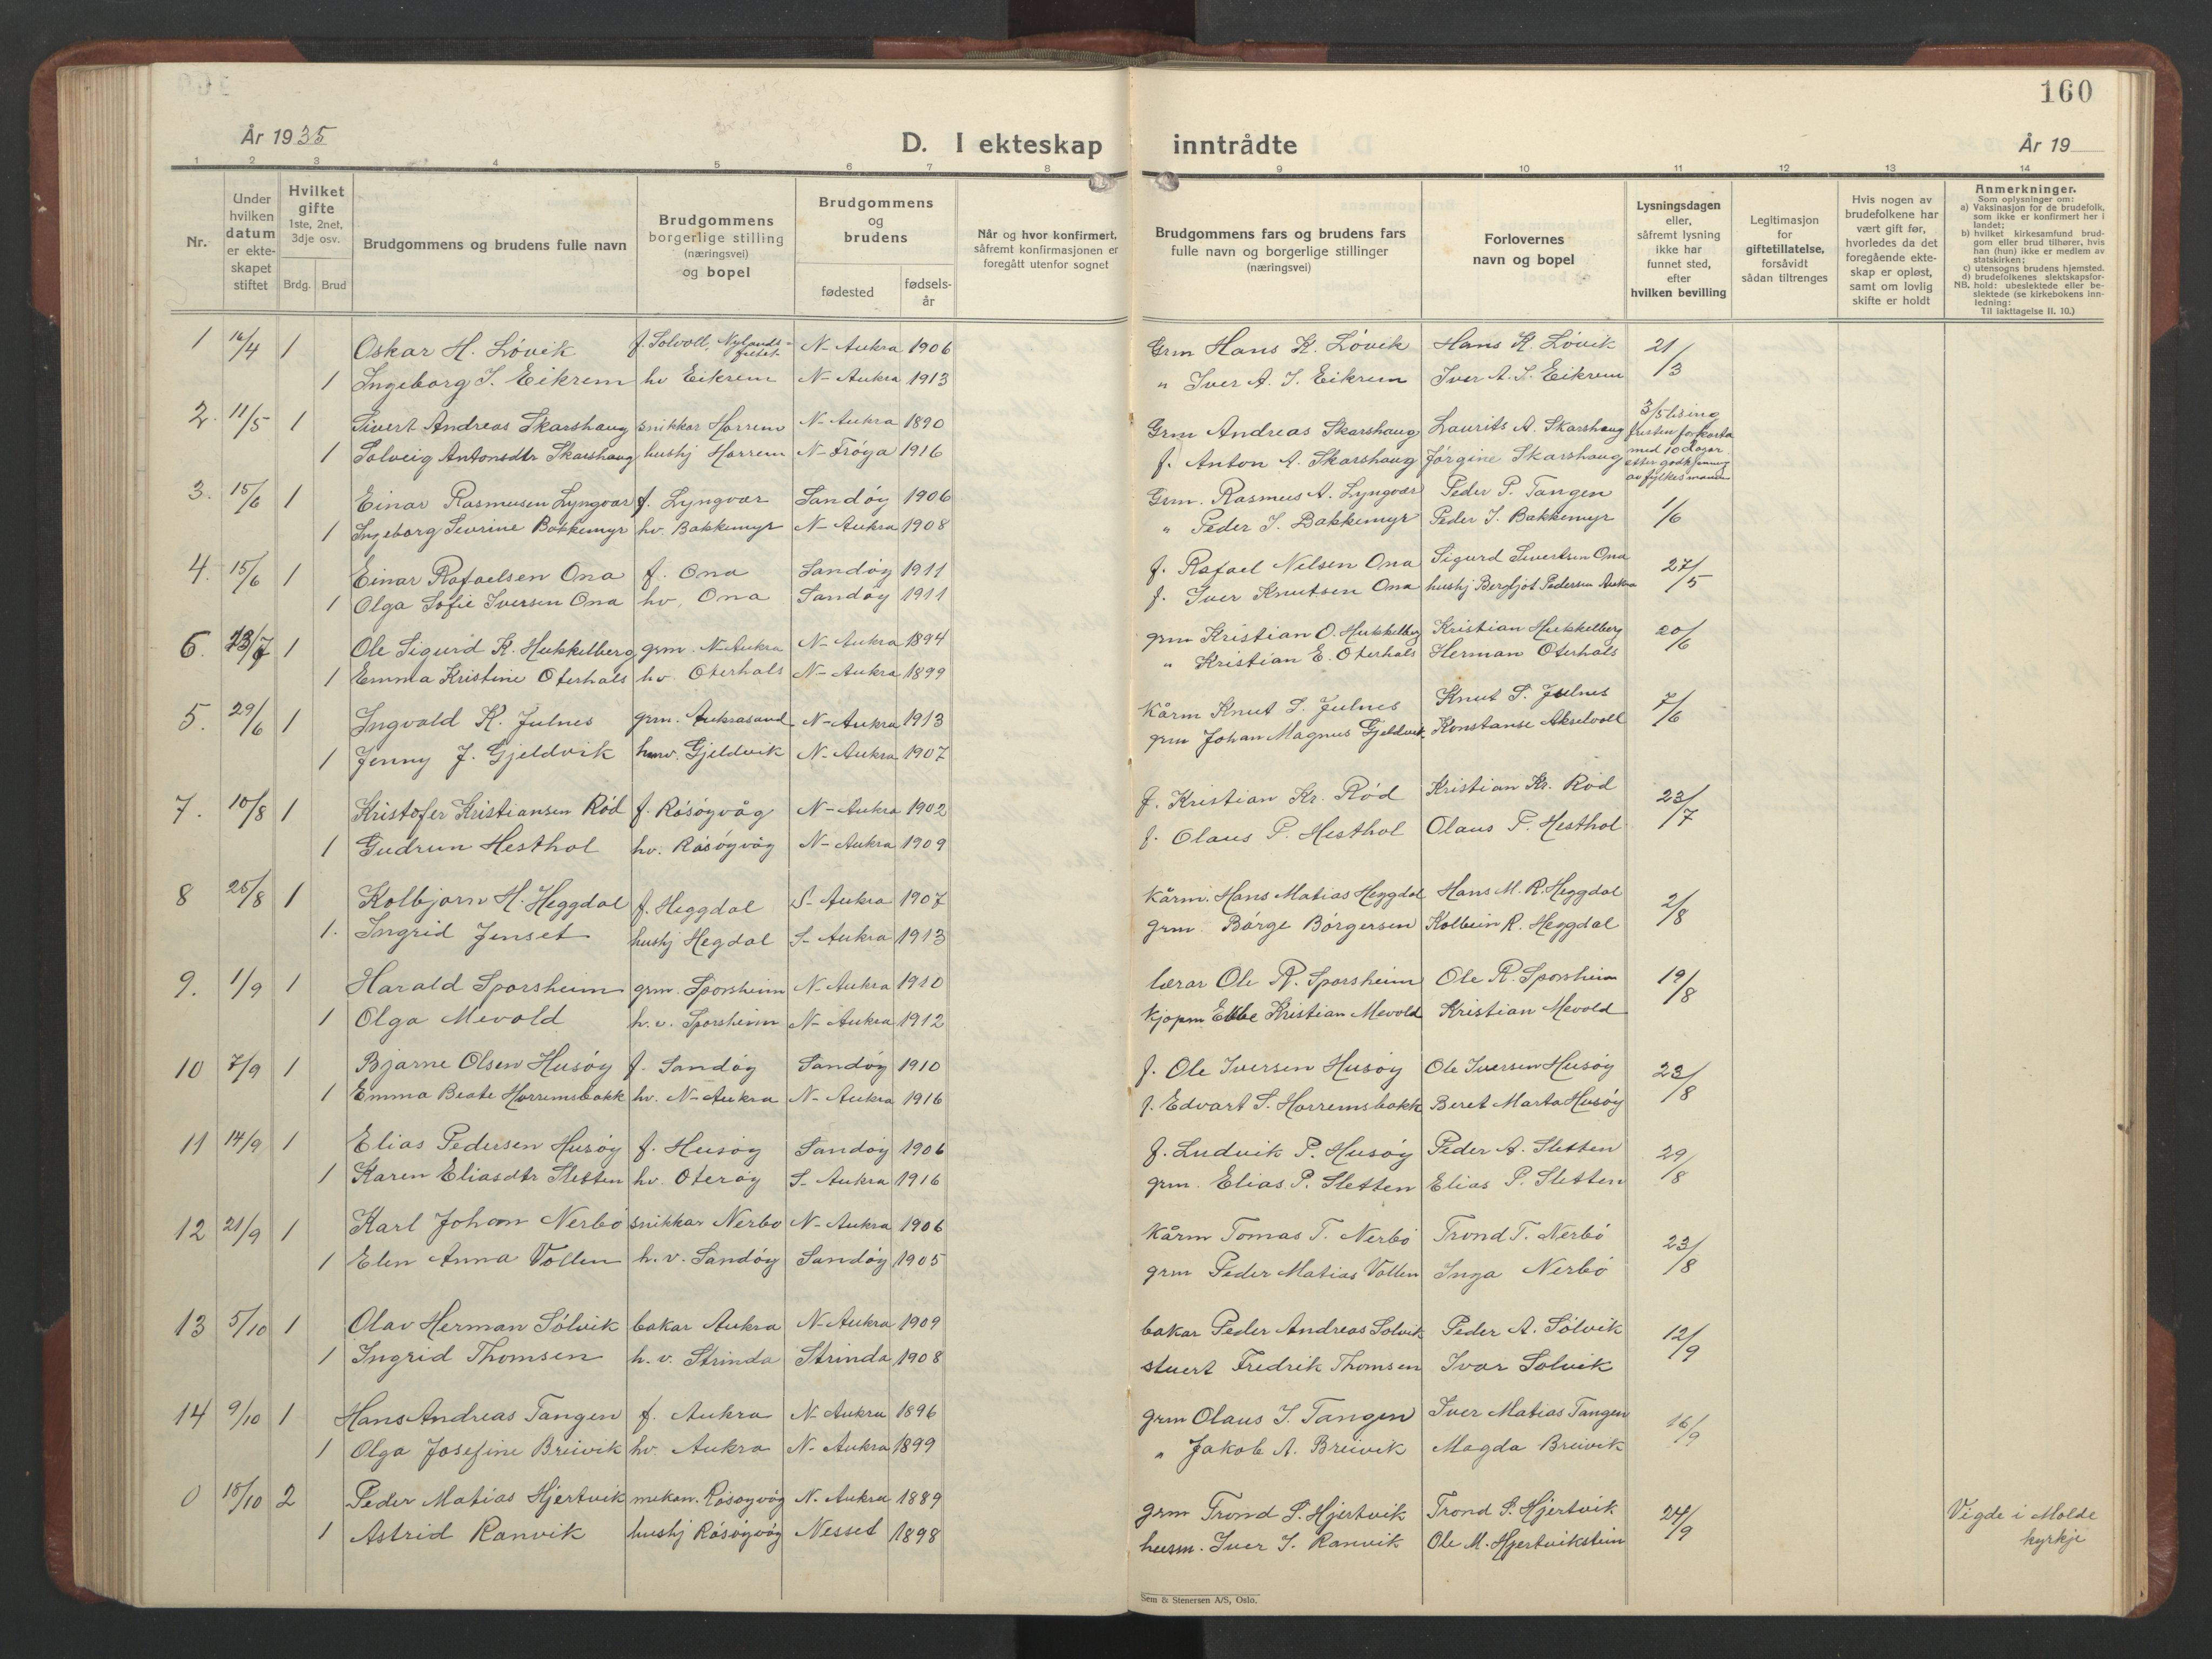 160
År 1935
D. I ekteskap inntrådte
År 19
1 2 3 4 5 6 7 8 9 10 11 12 13 14
Nr.
Under hvilken datum er ekteskapet stiftet
Hvilket gifte 1ste, 2net, 3dje osv.
Brdg. Brud
Brudgommens og brudens fulle navn
Brudgommens borgerlige stilling (næringsvei) og bopel
Brudgommens og brudens
fødested
fødselsår
Når og hvor konfirmert, såfremt konfirmasjonen er foregått utenfor sognet
Brudgommens fars og brudens fars fulle navn og borgerlige stillinger (næringsvei)
Forlovernes navn og bopel
Lysningsdagen eller, såfremt lysning ikke har funnet sted, efter hvilken bevilling
Legitimasjon for giftetillatelse, forsåvidt sådan tiltrenges
Hvis nogen av brudefolkene har vært gift før, hvorledes da det foregående ekteskap er opløst, samt om lovlig skifte er holdt
Anmerkninger.
Som oplysninger om:
a) Vaksinasjon for de brudefolk, som ikke er konfirmert her i landet;
b) hvilket kirkesamfund brudgom eller brud tilhører, hvis han (hun) ikke er medlem av statskirken;
c) utensogns brudens hjemsted.
d) brudefolkenes slektskapsforhold: ubeslektede eller beslektede (se kirkebokens innledning:
NB.
Til iakttagelse II. 10.)
1 16/4 1 Oskar H. Lóvik f. Solvoll, Nylandsfeltet N-Aukra 1906 Grm Hans K. Lóvik Hans K. Lóvik 21/3
1 Ingeborg I. Eikrem hv Eikrem N-Aukra 1913 " Iver A. I. Eikrem Iver A. I. Eikrem
2. 11/5 1 Sivert Andreas Skarshaug snikkar Horrem N-Aukra 1890 Grm Andreas Skarshaug Laurits A. Skarshaug 3/5 lising fristen forkorta
1 Solveig Antonsdtr Skarshaug hushj Horrem N-Fróya 1916 f. Anton A. Skarshaug Jórgine Skarshaug med 10 dagar etter godkjenning av fylkesmannen
3. 15/6 1 Einar Rasmusen Lyngvær f. Lyngvær Sandóy 1906 Grm. Rasmus A. Lyngvær Peder P. Tangen 1/6
1 Ingeborg Sevrine Bakkemyr hv. Bakkemyr N-Aukra 1908 " Peder I. Bakkemyr Peder I. Bakkemyr
4. 15/6 1 Einar Rafaelsen Ona f. Ona Sandóy 1911 f. Rafael Nilsen Ona Sigurd Sivertsen Ona 27/5
1 Olga Sofie Iversen Ona hv. Ona Sandóy 1911 f. Iver Knutsen Ona hushj Bergljot Pedersen Aukra
6. 13/7 1 Ole Sigurd K. Hukkelberg grm. N-Aukra N-Aukra 1894 grm Kristian O. Hukkelberg Kristian Hukkelberg 20/6
1 Emma Kristine Oterhals hv. Oterhals N-Aukra 1899 " Kristian E. Oterhals Herman Oterhals
5. 29/6 1 Ingvald K. Julnes grm. Aukrasand N-Aukra 1913 Kårm Knut S. Julnes Knut S. Julnes 7/6
1 Jenny J. Gjeldvik hv. Gjeldvik N-Aukra 1907 grm Johan Magnus Gjeldvik Konstanse Akselvoll
7. 10/8 1 Kristofer Kristiansen Ród f. Rósóyvåg N-Aukra 1902 f. Kristian Kr. Ród Kristian Kr. Ród 23/7
1 Gudrun Hesthol hv. Rósóyvåg N-Aukra 1909 f. Olaus P. Hesthol Olaus P. Hesthol
8 25/8 1 Kolbjorn H. Heggdal f. Heggdal S-Aukra 1907 Kårm. Hans Matias Heggdal Hans M. R. Heggdal 2/8
1. Ingrid Jenset hushj Hegdal S-Aukra 1913 grm. Bórge Bórgersen Kolbein R. Heggdal
9. 1/9 1 Harald Sporsheim grm. Sporsheim N-Aukra 1910 lærar Ole R. Sporsheim Ole R. Sporsheim 19/8
1 Olga Mevold h.v. Sporsheim N-Aukra 1912 Kjopm Ebbe Kristian Mevold Kristian Mevold
10 7/9 1 Bjarne Olsen Husóy f. Sandóy Sandóy 1910 f. Ole Iversen Husóy Ole Iversen Husóy 23/8
1 Emma Beate Horremsbakk hv. N-Aukra N-Aukra 1916 f. Edvart S. Horremsbakk Beret Marta Husóy
11 14/9 1 Elias Pedersen Husóy f. Husóy Sandóy 1906 f. Ludvik P. Husóy Peder A. Sletten 29/8
1 Karen Eliasdtr Sletten hv. Oteróy S-Aukra 1916 grm. Elias P. Sletten Elias P. Sletten
12 21/9 1 Karl Johan Nerbó snikkar Nerbo N-Aukra 1906 Kårm Tomas T. Nerbó Trond T. Nerbó 23/8
1 Elen Anna Vollen h.v. Sandóy Sandóy 1905 grm Peder Matias Vollen Inga Nerbó
13 5/10 1 Olav Herman Sólvik bakar Aukra N-Aukra 1909 bakar Peder Andreas Solvik Peder A. Sólvik 12/9
1 Ingrid Thomsen h.v. Strinda Strinda 1908 stuert Fredrik Thomsen Ivar Solvik
14 9/10 1 Hans Andreas Tangen f. Aukra N-Aukra 1896 grm Olaus I. Tangen Iver Matias Tangen 16/9
1 Olga Josefine Breivik hv. Aukra N-Aukra 1899 " Jakob A. Breivik Magda Breivik
0 18/10 2 Peder Matias Hjertvik mekan. Rósoyvåg N-Aukra 1889 grm Trond S. Hjertvik Trond S. Hjertvik 24/9 Vigde i Molde
1 Astrid Ranvik hushj Rósóyvåg Nesset 1898 husm. Iver I. Ranvik Ole M. Hjertvikstein kyrkje
Sem & Stenersen A/S, Oslo.